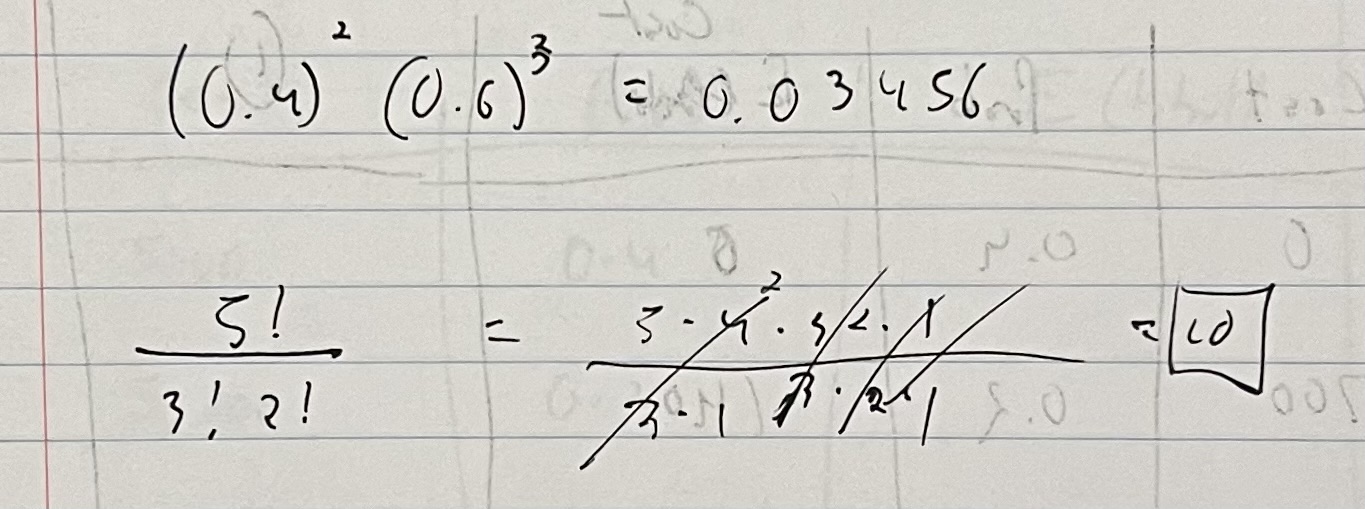 (0.4)² (0.6)³ = 0.03456
5! / 3! 2! = 5 · 4² · 3 · 2 · 1 / 2 · 1 3 · 2 · 1 = 10